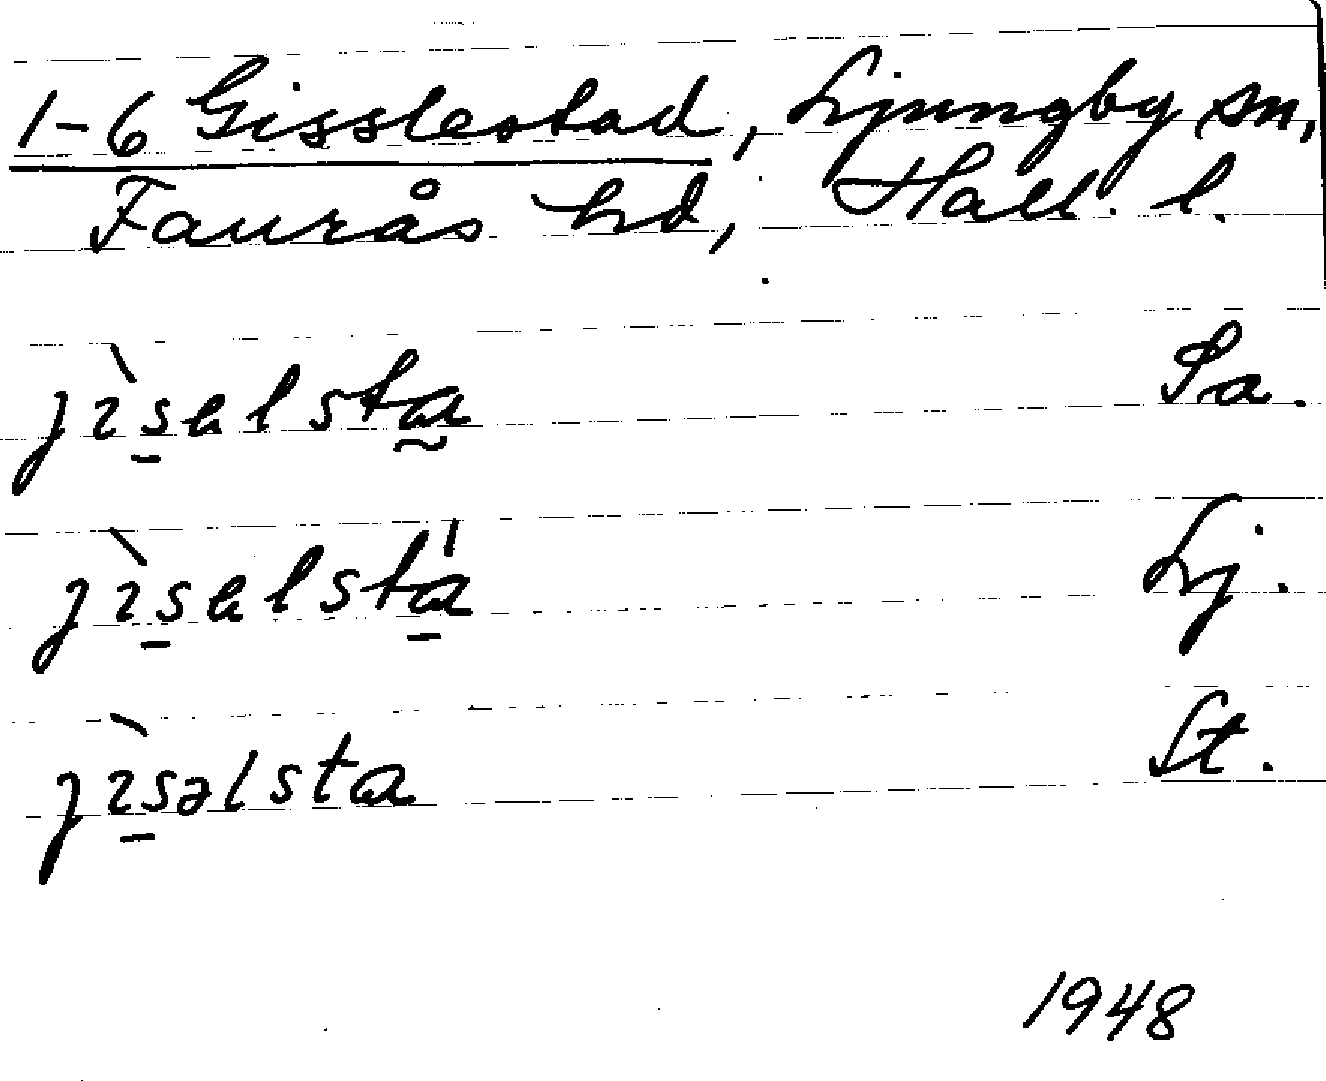 1-6 Gisslestad, Ljungby sn,
Faurås hd, Hall. l.
jìs̠elsta̰ Sa.
jìs̠elstá̠ Lj.
jìs̠əlsta St.
1948